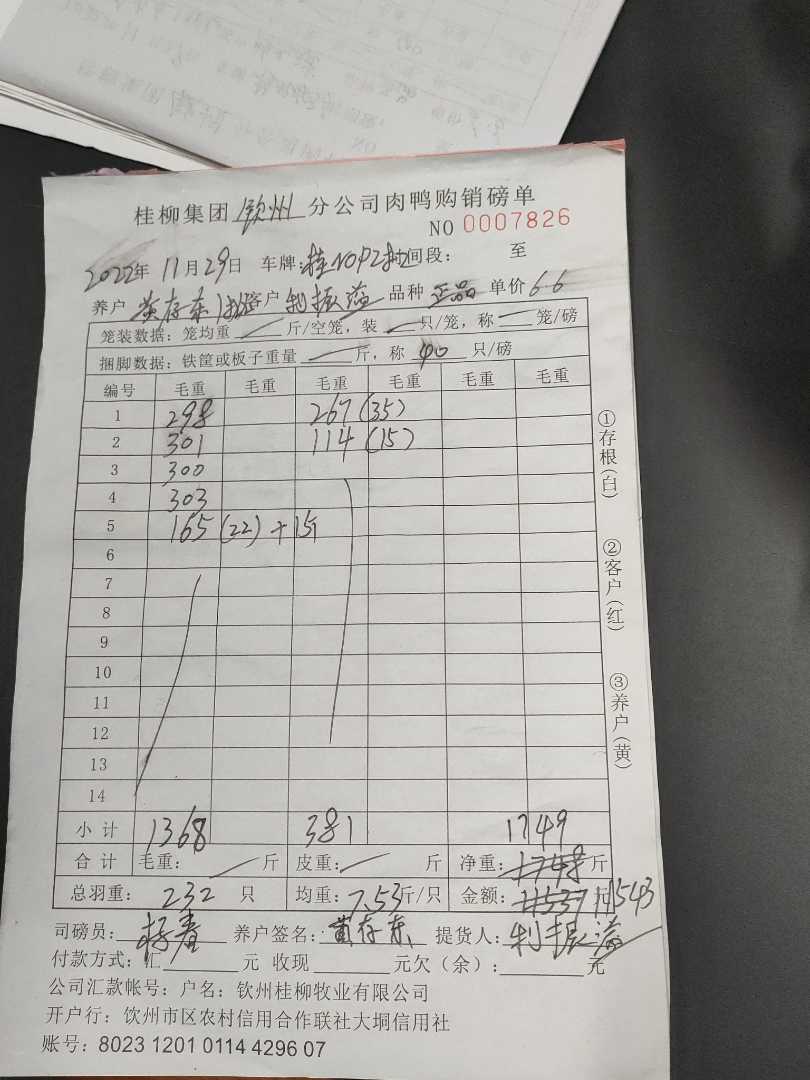 桂柳集团 钦州 分公司肉鸭购销磅单
NO 0007826
2022年 11月29日 车牌: 桂N0P2 时间段: 至
养户 黄存东 客户 利振溢 品种 正品 单价 6.6
笼装数据: 笼均重 斤/空笼, 装 只/笼, 称 笼/磅
捆脚数据: 铁筐或板子重量 斤, 称 40 只/磅
编号 毛重 毛重 毛重 毛重 毛重 毛重
1 298 267 (35)
2 301 114 (15)
3 300
4 303
5 165 (22) + 1斤
6
7
8
9
10
11
12
13
14
小计 1368 381 1749
合计 毛重: 斤 皮重: 斤 净重: 1748 斤
总羽重: 232 只 均重: 7.53 斤/只 金额: 11537 元 11543
司磅员: 养户签名: 黄存东 提货人: 利振溢
付款方式: 汇 元 收现 元欠(余): 元
公司汇款帐号: 户名: 钦州桂柳牧业有限公司
开户行: 饮州市区农村信用合作联社大垌信用社
账号: 8023 1201 0114 4296 07
①存根(白)
②客户(红)
③养户(黄)